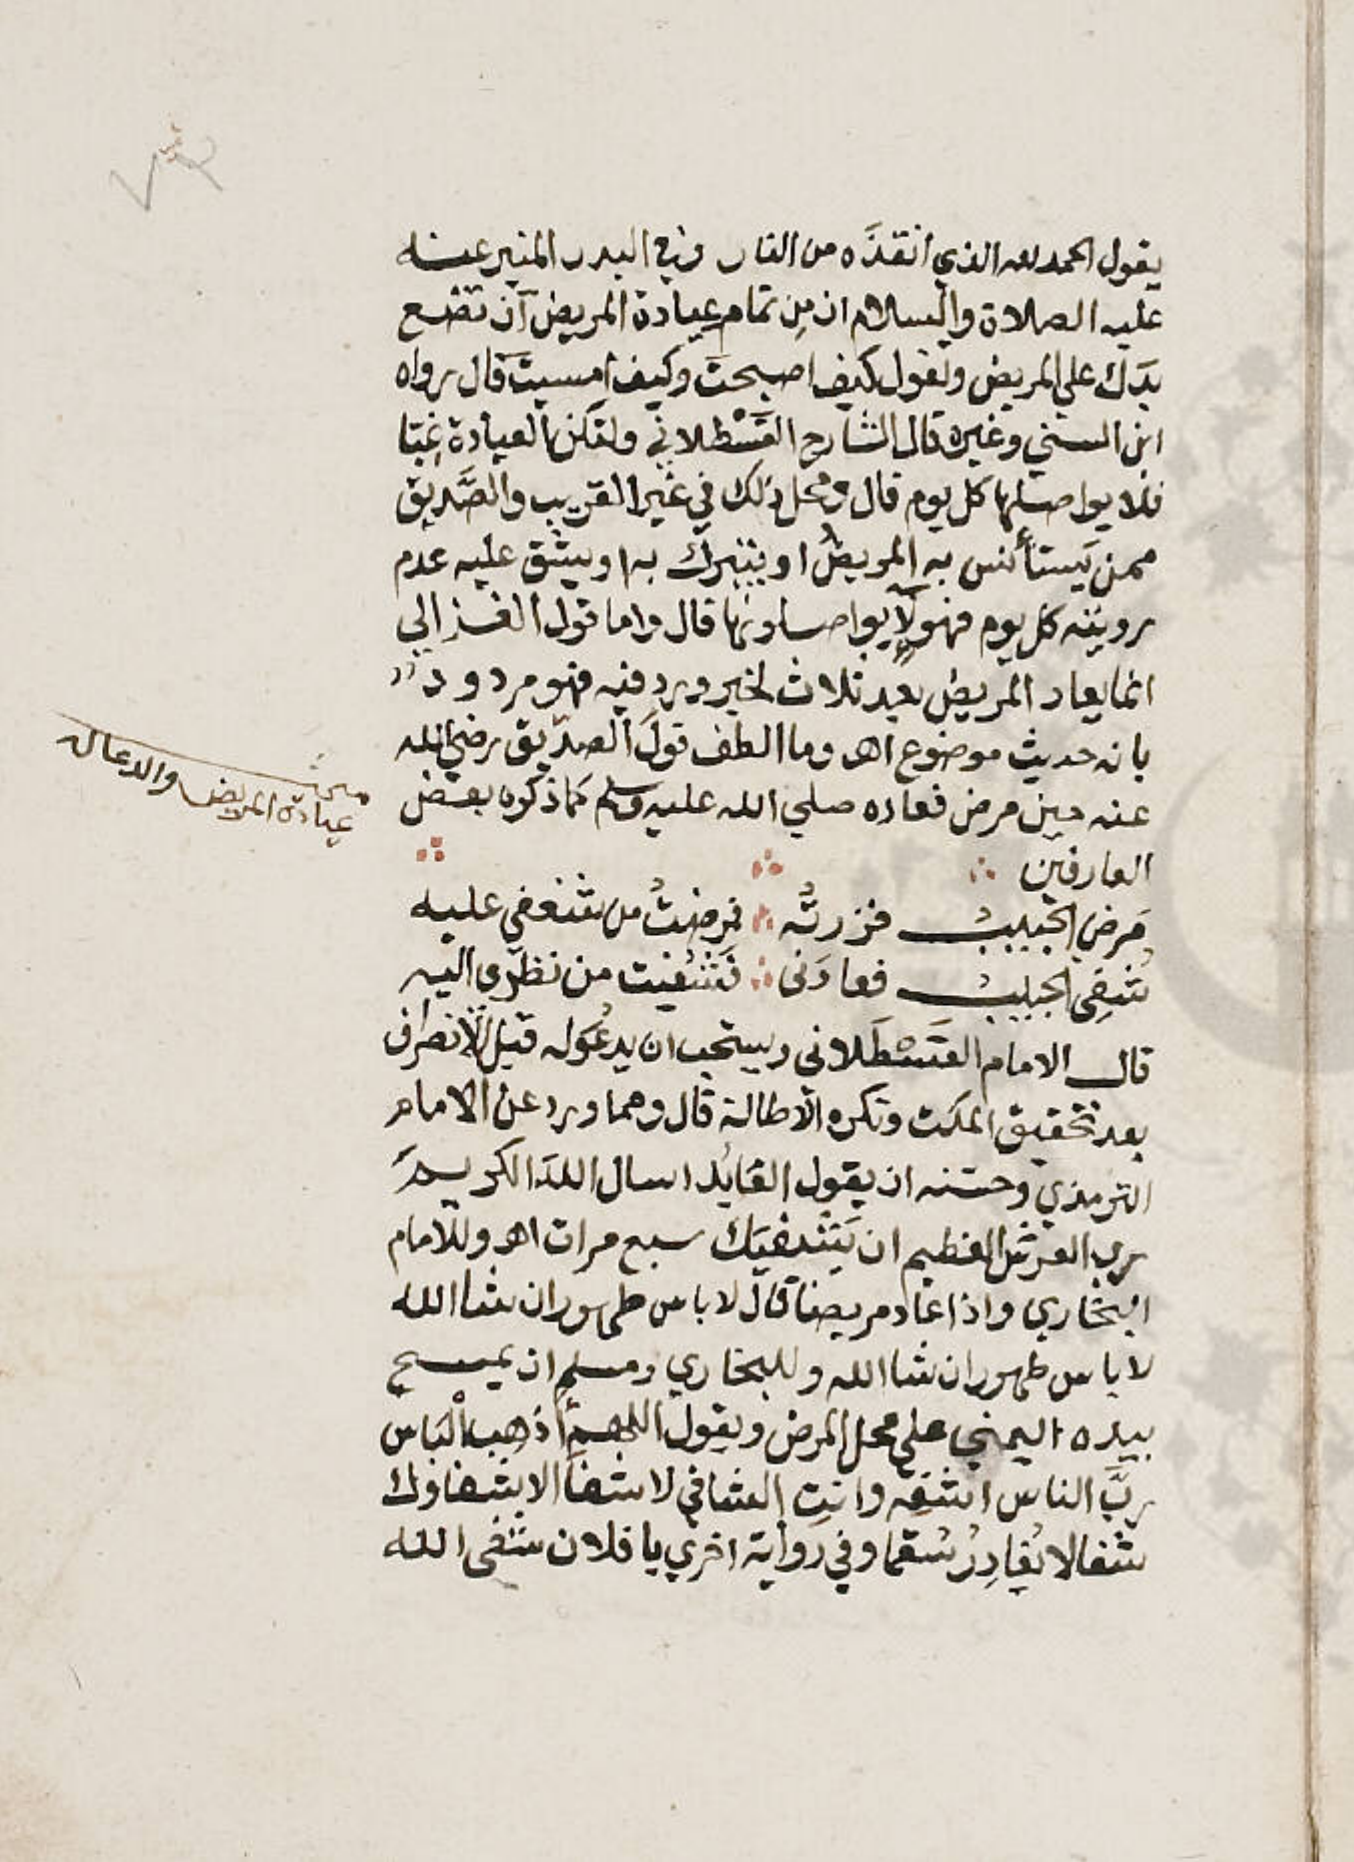 ٧٣
يقول الحمد لله الذي أنقذَه من النار وفي البدر المنير عنه
عليه الصلاة والسلام ان مِن تمام عيادة المريض أن تضع
يدَك علي المريض وتقول كيف اصبحتَ وكيف أمسيتَ قال رواه
ابن السني وغيره قال الشارح القَسْطلاني ولتكن العيادة غِبّا
فلا يواصلها كل يوم قال ومحل ذلك في غير القريب والصَّديق
ممن يَستأنس به المريضُ او يتبرك به او يشق عليه عدم
رويته كل يوم فهولآ يواصلونها قال واما قول الغزالي
انما يعاد المريض بعد ثلاث لخبر ورد فيه فهو مردود
بانه حديث موضوع اهـ وما الطف قولَ الصدّيق رضي الله
عنه حين مرض فعاده صلي الله عليه وسلم كما ذكره بعض
العارفين
مبحث
عيادة المريض والدعا له
مَرض الحبيبُ فزرتُه فمرضتُ من شفقي عليه
شُفِي الحبيبُ فعادَني فَشُفيت من نظري اليه
قال الامام القَسْطَلاني ويستحب ان يدعُوَ له قبل الانصراف
بعد تحقيق المكث وتكره الاطالة قال ومما ورد عن الامام
الترمذي وحسَّنه ان يقول العايد اسال اللهَ الكريمَ
رب العرش العظيم ان يَشفيَك سبع مرات اهـ وللامام
البخاري واذا عاد مريضا قال لا باس طهور ان شا الله
لا باس طهور ان شا الله وللبخاري ومسلم ان يمسح
بيده اليمني علي محل المرض ويقول اللهم أذهِب البَاس
ربَّ الناس اشفِه وانت الشافي لا شفا الا شفاوك
شفا لا يُغادِرُ سُقما وفي رواية اخري يا فلان شفى الله